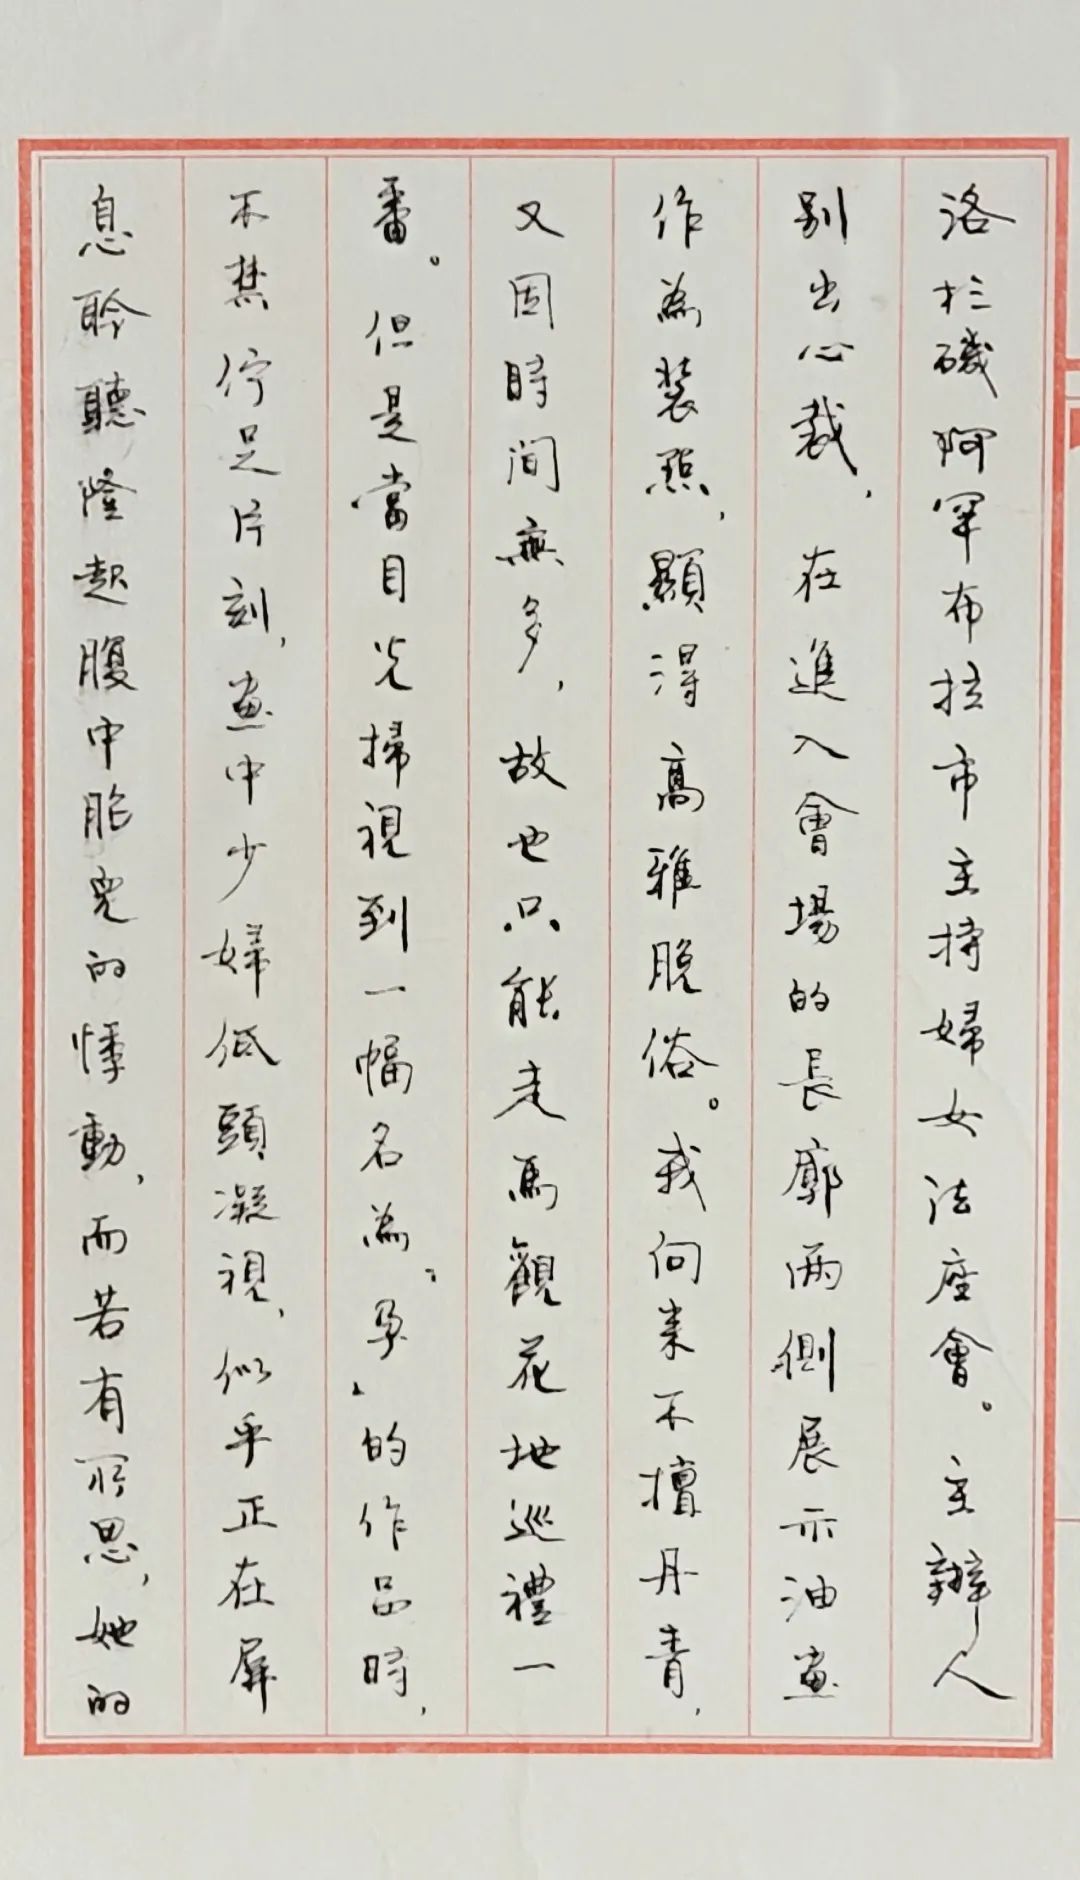 洛杉磯阿罕布拉市主持婦女法座會。主辦人
別出心裁，在進入會場的長廓兩側展示油畫
作為裝點，顯得高雅脫俗。我向來不擅丹青，
又因時間無多，故也只能走馬觀花地巡禮一
番。但是當目光掃視到一幅名為“孕”的作品時，
不禁佇足片刻，畫中少婦低頭凝視，似乎正在屏
息聆聽隆起腹中胎兒的悸動，而若有所思，她的